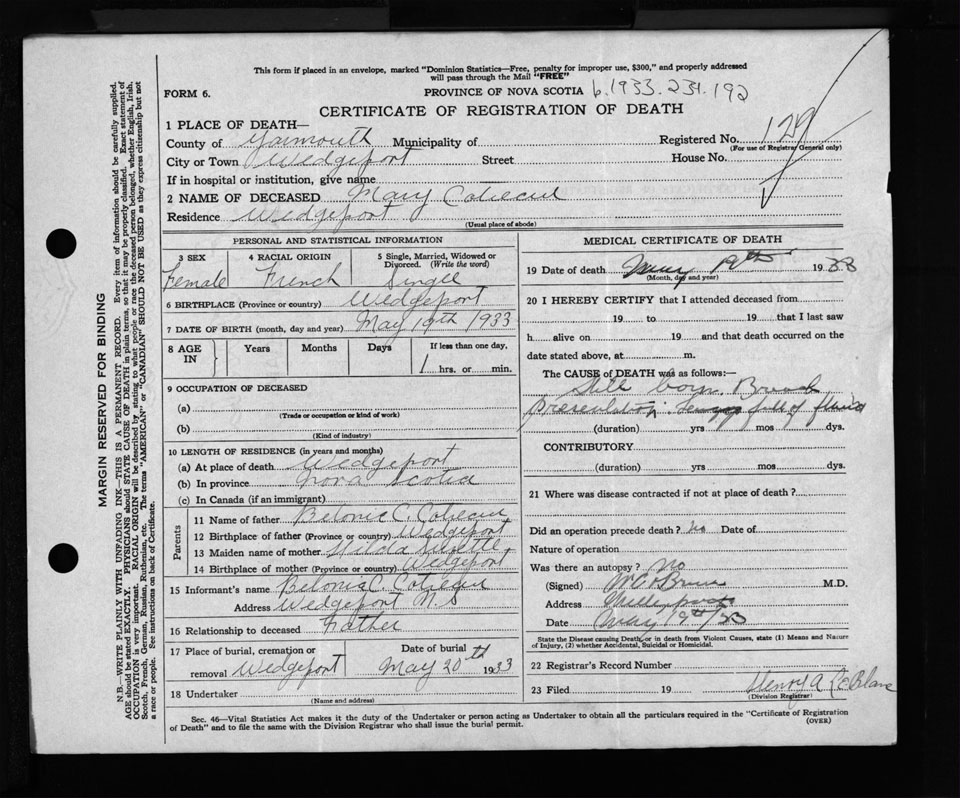 This form if placed in an envelope, marked "Dominion Statistics—Free, penalty for improper use, $300," and properly addressed
will pass through the Mail "FREE"
FORM 6. PROVINCE OF NOVA SCOTIA 6.1933.231.192
CERTIFICATE OF REGISTRATION OF DEATH
1 PLACE OF DEATH—
County of Yarmouth Municipality of Registered No. 129
(For use of Registrar General only)
City or Town Wedgeport Street House No.
If in hospital or institution, give name
2 NAME OF DECEASED Mary
Residence Wedgeport
(Usual place of abode)
PERSONAL AND STATISTICAL INFORMATION
3 SEX 4 RACIAL ORIGIN 5 Single, Married, Widowed or
Divorced. (Write the word)
Female French Single
6 BIRTHPLACE (Province or country) Wedgeport
7 DATE OF BIRTH (month, day and year) May 19th 1933
8 AGE IN Years Months Days If less than one day,
1 hrs. or min.
9 OCCUPATION OF DECEASED
(a)
(Trade or occupation or kind of work)
(b)
(Kind of industry)
10 LENGTH OF RESIDENCE (in years and months)
(a) At place of death Wedgeport
(b) In province Nova Scotia
(c) In Canada (if an immigrant)
Parents
11 Name of father C.
12 Birthplace of father (Province or country) Wedgeport
13 Maiden name of mother Hilda
14 Birthplace of mother (Province or country) Wedgeport
15 Informant's name C.
Address Wedgeport N.S
16 Relationship to deceased Father
17 Place of burial, cremation or Date of burial
removal Wedgeport May 20th 1933
18 Undertaker
(Name and address)
MEDICAL CERTIFICATE OF DEATH
19 Date of death May 19th 1933
(Month, day and year)
20 I HEREBY CERTIFY that I attended deceased from
19 to 19 that I last saw
h alive on 19 and that death occurred on the
date stated above, at m.
The CAUSE of DEATH was as follows:—
Still born. Breech
presentation. full of fluid
(duration) yrs mos dys.
CONTRIBUTORY
(duration) yrs mos dys.
21 Where was disease contracted if not at place of death?
Did an operation precede death? No Date of
Nature of operation
Was there an autopsy? No
(Signed) M.D.
Address
Date May 19th/33
State the Disease causing Death, or in death from Violent Causes, state (1) Means and Nature
of Injury, (2) whether Accidental, Suicidal or Homicidal.
22 Registrar's Record Number
23 Filed 19 Henry A. LeBlanc
(Division Registrar)
Sec. 46—Vital Statistics Act makes it the duty of the Undertaker or person acting as Undertaker to obtain all the particulars required in the "Certificate of Registration
of Death" and to file the same with the Division Registrar who shall issue the burial permit. (OVER)
MARGIN RESERVED FOR BINDING
N.B.—WRITE PLAINLY WITH UNFADING INK—THIS IS A PERMANENT RECORD. Every item of information should be carefully supplied.
AGE should be stated EXACTLY. PHYSICIANS should STATE CAUSE OF DEATH in plain terms, so that it may be properly classified. Exact statement of
OCCUPATION is very important. RACIAL ORIGIN will be described by stating to what people or race the deceased person belonged, whether English, Irish,
Scotch, French, German, Russian, Ruthenian, etc. The terms "AMERICAN" or "CANADIAN" SHOULD NOT BE USED as they express citizenship but not
a race or people. See instructions on back of Certificate.